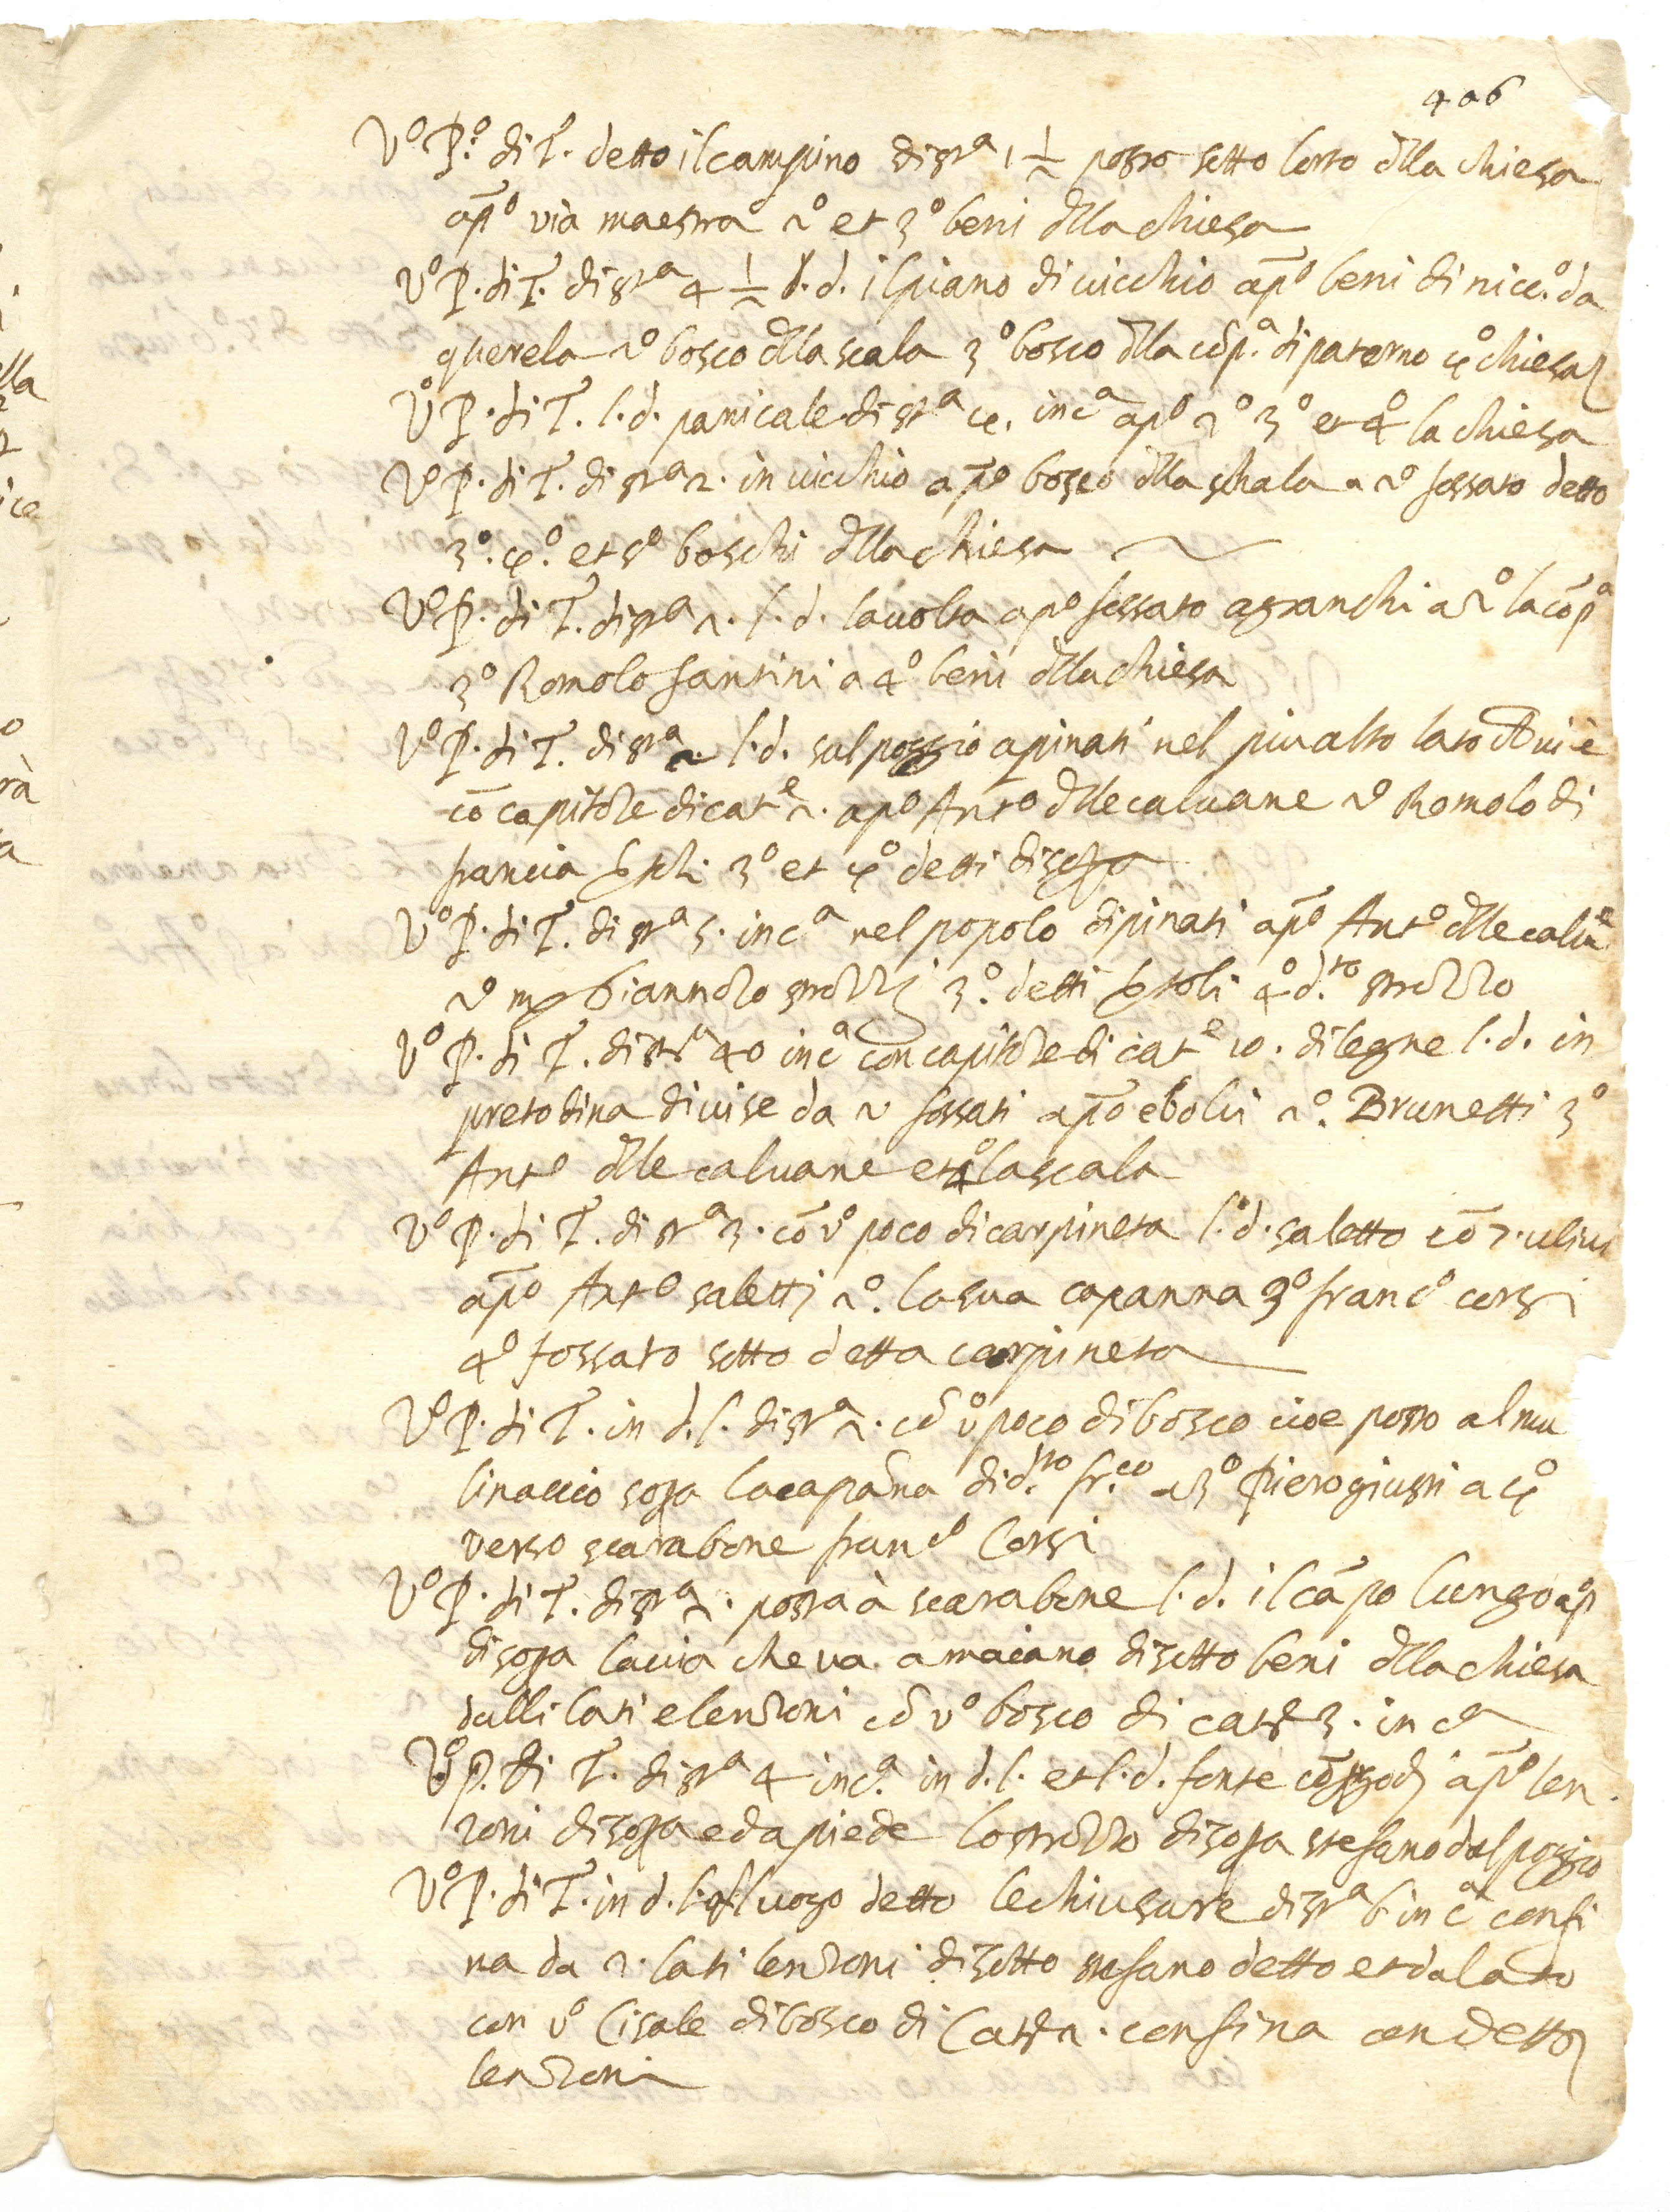 406
Vº Pº di Tº. detto il campino di stª 1 1/2 posto sotto lorto dlla chiesa
apº via maestra 2º et 3º beni dlla chiesa
Vº P. di T. di stª 4 1/2 l. d. il piano di vicchio apº beni di nicc.º da
querela 2º bosco dlla scala 3º bosco dlla cōp.ª di paterno 4º chiesa
Vº P. di T. l. d. panicale di stª 4. in cª apº 2º 3º et 4º la chiesa
Vº P. di T. di stª 2. in vicchio apº bosco dlla schala a 2º fossato detto
3º. 4º. et 5º boschi dlla chiesa
Vº P. di T. di stª 2. l. d. la volta apº fossato agranchi a 2º la cōpª
3º Romolo santini a 4º beni dlla chiesa
Vº P. di T. di stª 2 l. d. sul poggio a pinati nel piu alto lato vi è
cō capitōze di catᵉ 2. apº Antº dlle calvane 2º Romolo di
francia 3º et 4º detti di sopra
Vº P. di T. di stª 5. in cª nel popolo di pinati apº Antº dlle calvᵉ
2º Giannozo strozzi 3.º detti 4º d.ᵗᵒ strozzo
Vº P. di T. di stª 40 in cª con capitōze di catᵉ 10. di legne l. d. in
pretodina divise da 2 fossati apº eboli 2º. Brunetti 3º
Antº dlle calvane et 4º la scala
Vº P. di T. di stª 3. cō vº poco di carpineta l. d. saletto cō 7. ulivi
apº Antº saletti 2º. la sua capanna 3º francº corsi
4º fossato sotto detta carpineta
Vº P. di T. in d. l. di stª 2. cō vº poco di bosco cioe posto al mu
linaccio sopa la capāna di d.ᵗᵒ fr.ᶜᵒ a 3º Piero giusti a 4º
verso scarabone francº Corsi
Vº P. di T. di stª 2. posta à scarabone l. d. il cāpo lungo apº
di sopa la via che va a maiano di sotto beni dlla chiesa
dalli lati e lenzoni cō vº bosco di catᵉ 3. in cª
Vº P. di T. di stª 4 in cª. in d. l. et l. d. fonte apº len
zoni di sopa e da piede lo strozzo di sopa stefano dal poggio
Vº P. di T. in d. l. luogo detto le chiusure di stª 6 in cª confi
na da 2. lati lenzoni di sotto stefano detto et da lato
con vº Cisale di bosco di Catᵉ 2. confina con detto
lenzoni